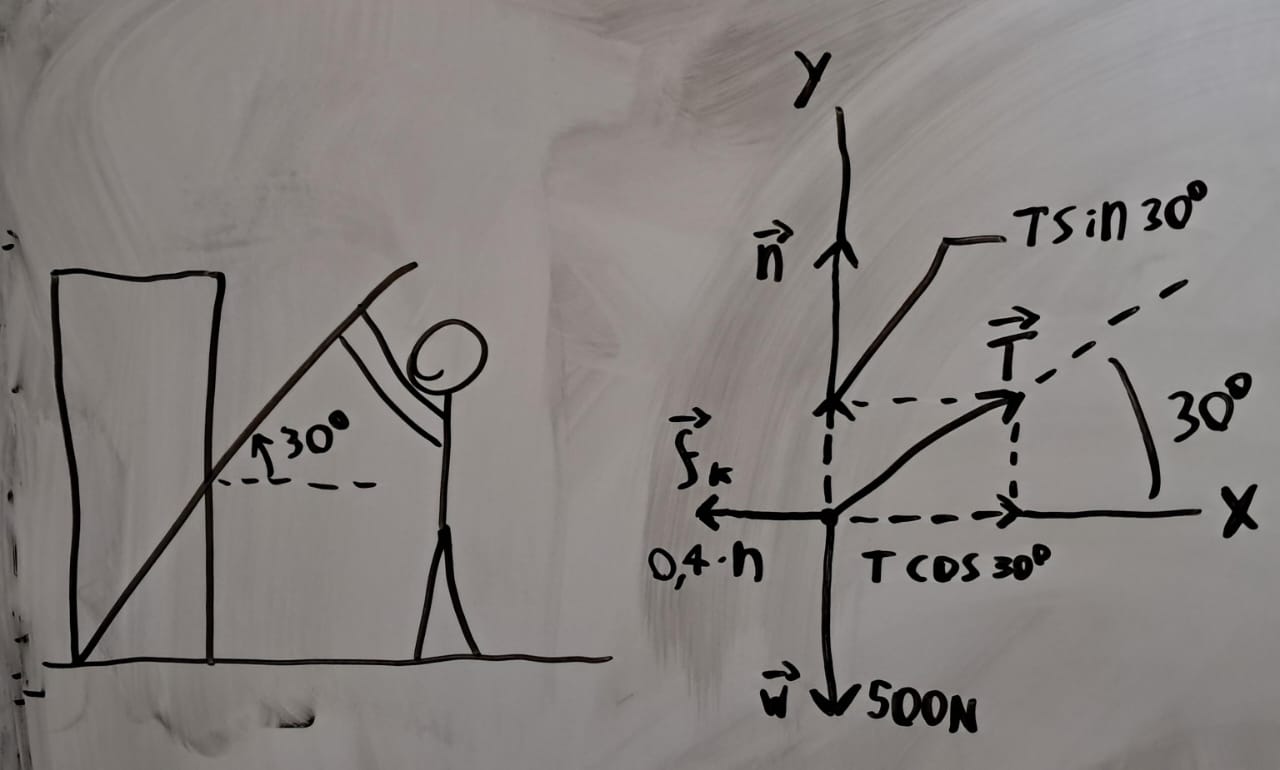 30°
Y
n⃗
T sin 30°
T⃗
30°
f⃗ₖ
X
0,4·n
T cos 30°
w⃗
500N